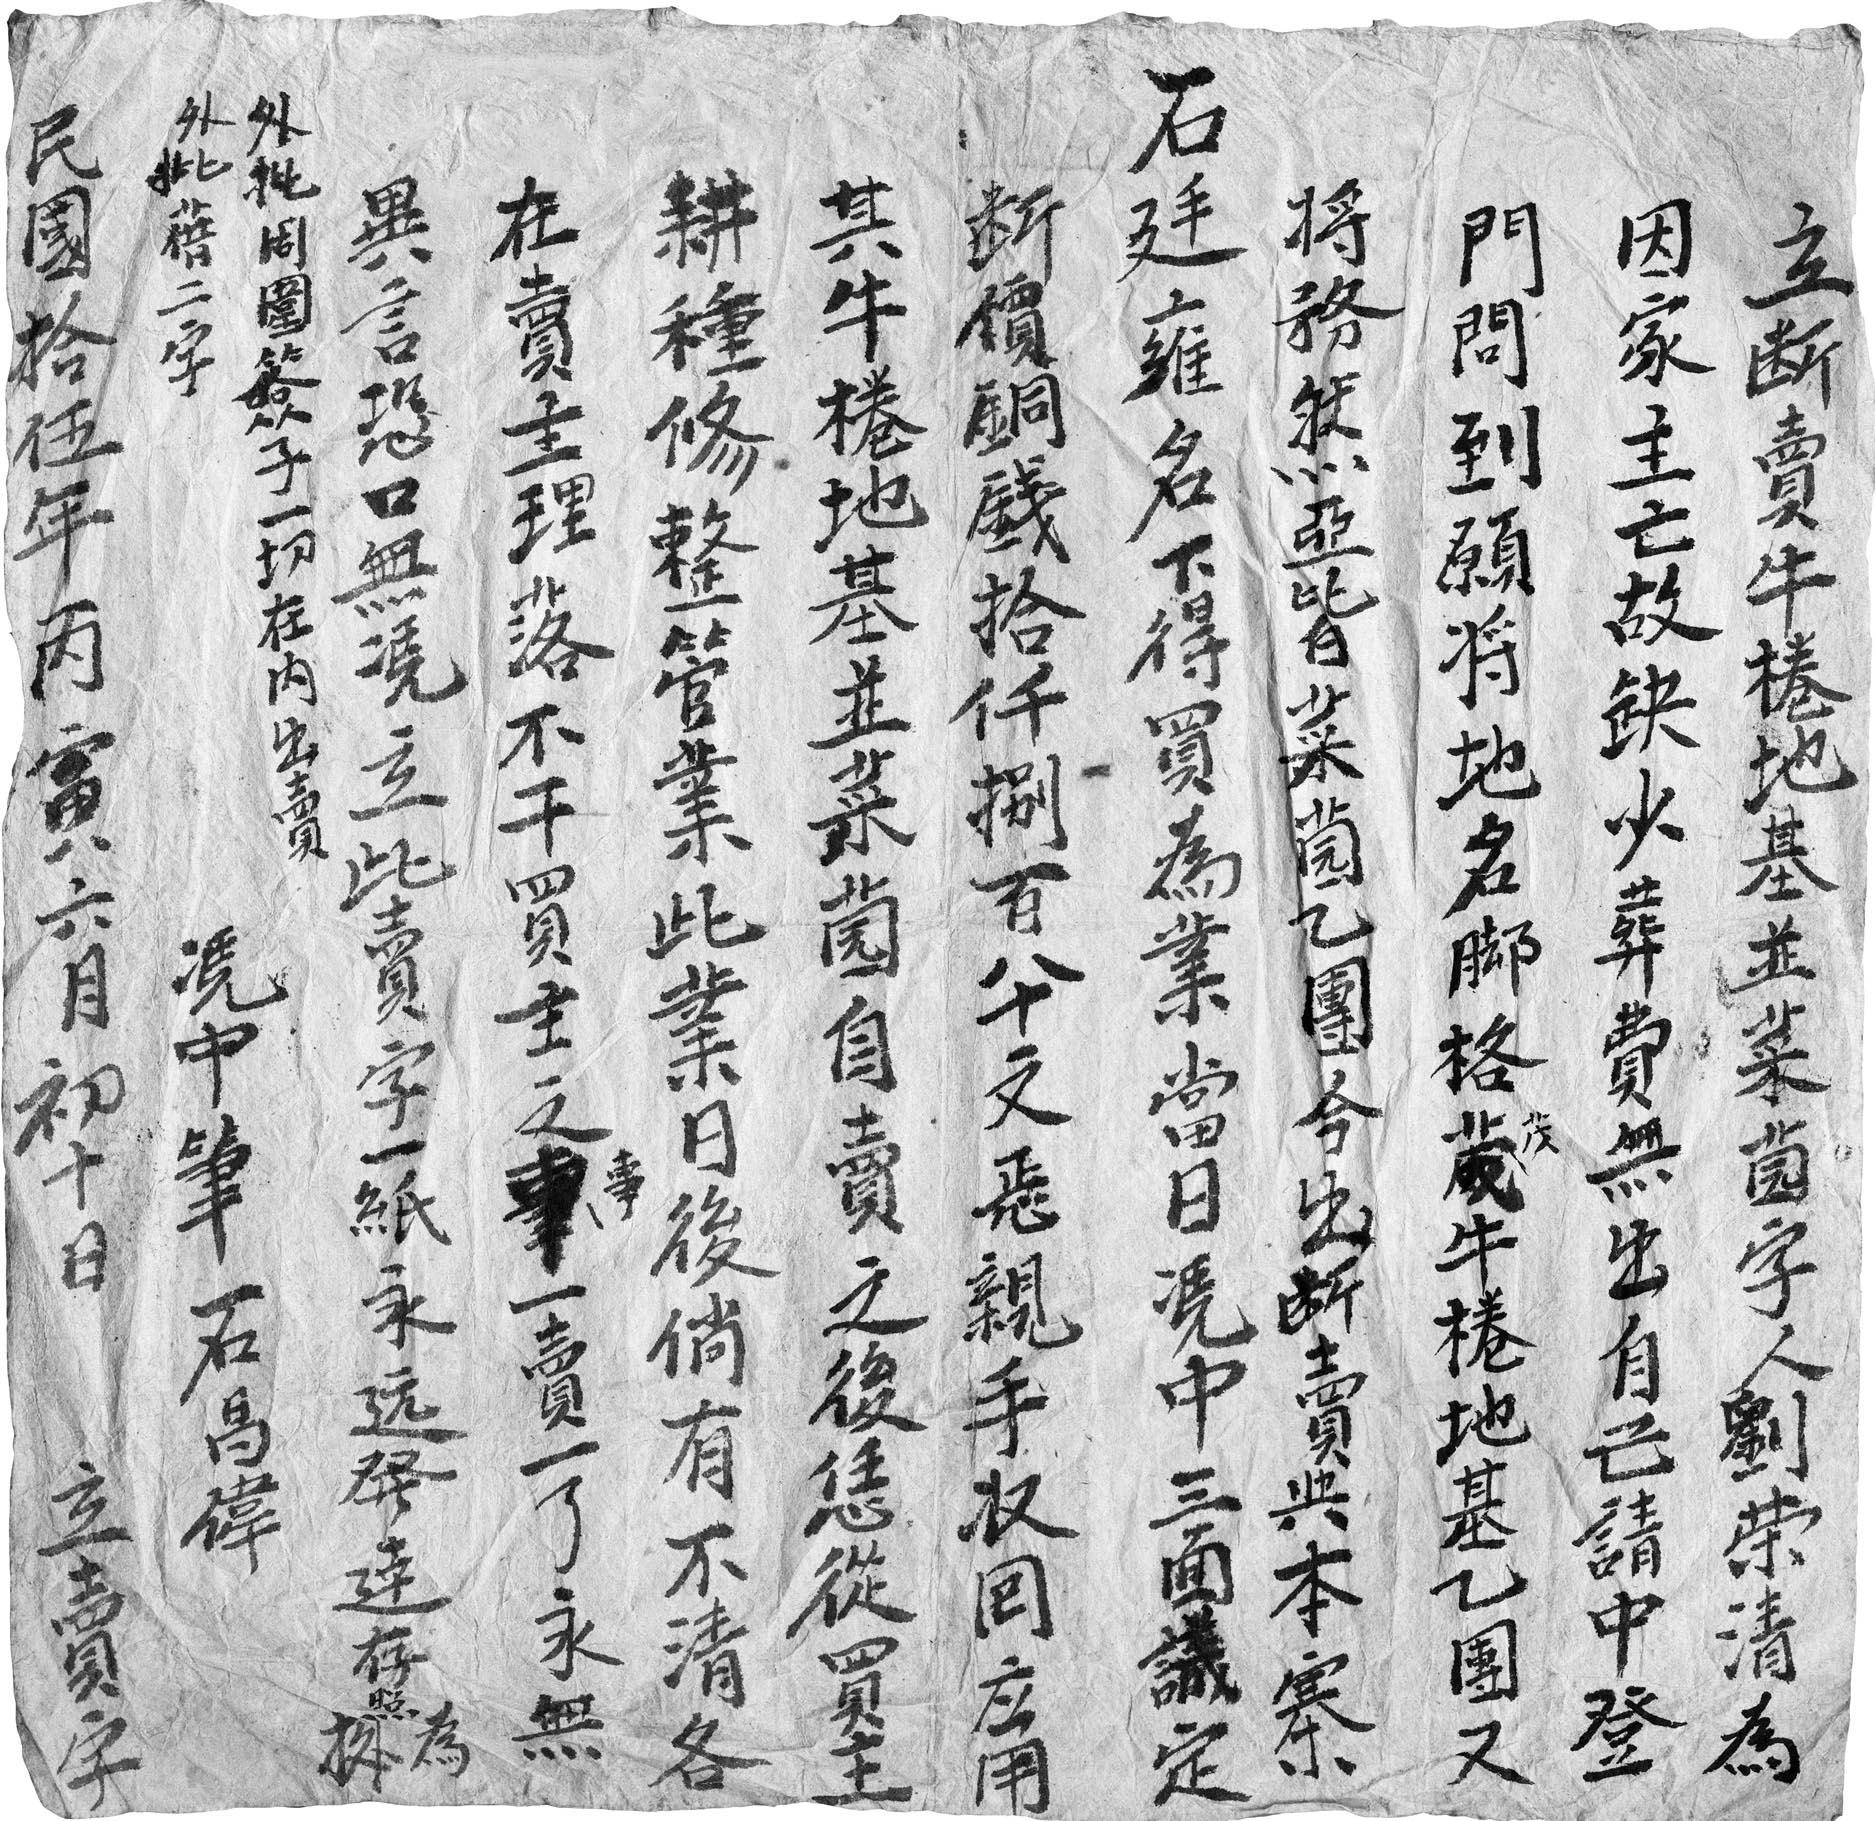 立断賣牛棬地基並菜茵字人劉荣清為
因家主亡故缺少葬費無出自己請中登
門問到願将地名脚格茂牛棬地基乙團又
将務然亞皆菜茵乙團今出断賣與本寨
石廷雍名下得買為業當日凴中三面議定
断價銅錢拾仟捌百八十文亲親手收囘应用
其牛棬地基並菜茵自賣之後恁從買主
耕種修整管業此業日後倘有不清各
在賣主理落不干買主之事一賣一了永無
異言恐口無凴立此賣字一紙永远發達存照為據
外批周圍簽子一切在内出賣
外批藉二字
凴中筆 石昌偉
民國拾伍年丙寅六月初十日 立賣字